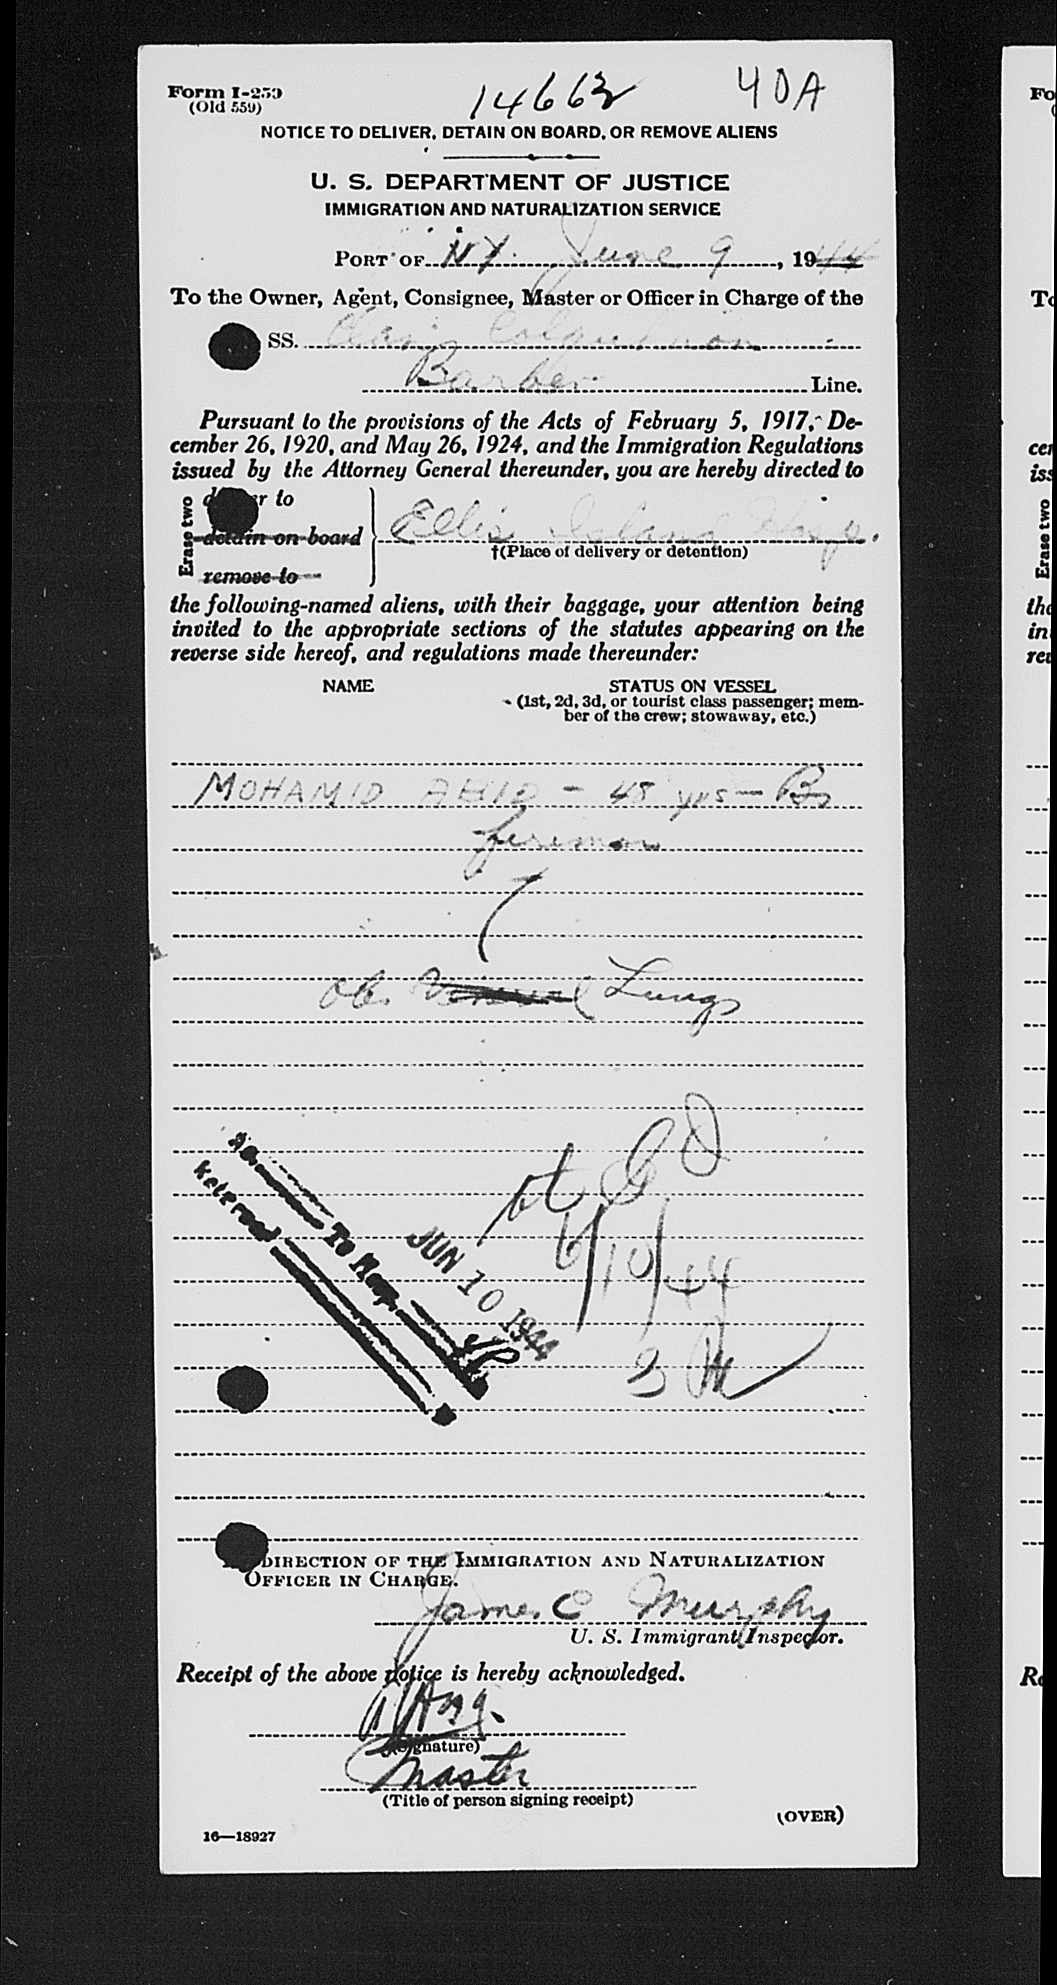 Form I-259
(Old 559)
14662 40A
NOTICE TO DELIVER, DETAIN ON BOARD, OR REMOVE ALIENS
U. S. DEPARTMENT OF JUSTICE
IMMIGRATION AND NATURALIZATION SERVICE
PORT OF NY June 9, 1944
To the Owner, Agent, Consignee, Master or Officer in Charge of the
SS.
Barber Line.
Pursuant to the provisions of the Acts of February 5, 1917, De-
cember 26, 1920, and May 26, 1924, and the Immigration Regulations
issued by the Attorney General thereunder, you are hereby directed to
Erase two
to
detain on board
remove to
Ellis Island
†(Place of delivery or detention)
the following-named aliens, with their baggage, your attention being
invited to the appropriate sections of the statutes appearing on the
reverse side hereof, and regulations made thereunder:
NAME STATUS ON VESSEL
(1st, 2d, 3d, or tourist class passenger; mem-
ber of the crew; stowaway, etc.)
MOHAMID - 48 yrs - Br
fireman
Obs Lungs
To Hosp.
JUN 10 1944
6/10/44
DIRECTION OF THE IMMIGRATION AND NATURALIZATION
OFFICER IN CHARGE.
James C Murphy
U. S. Immigrant Inspector.
Receipt of the above notice is hereby acknowledged.
(Signature)
Master
(Title of person signing receipt)
(OVER)
16—18927